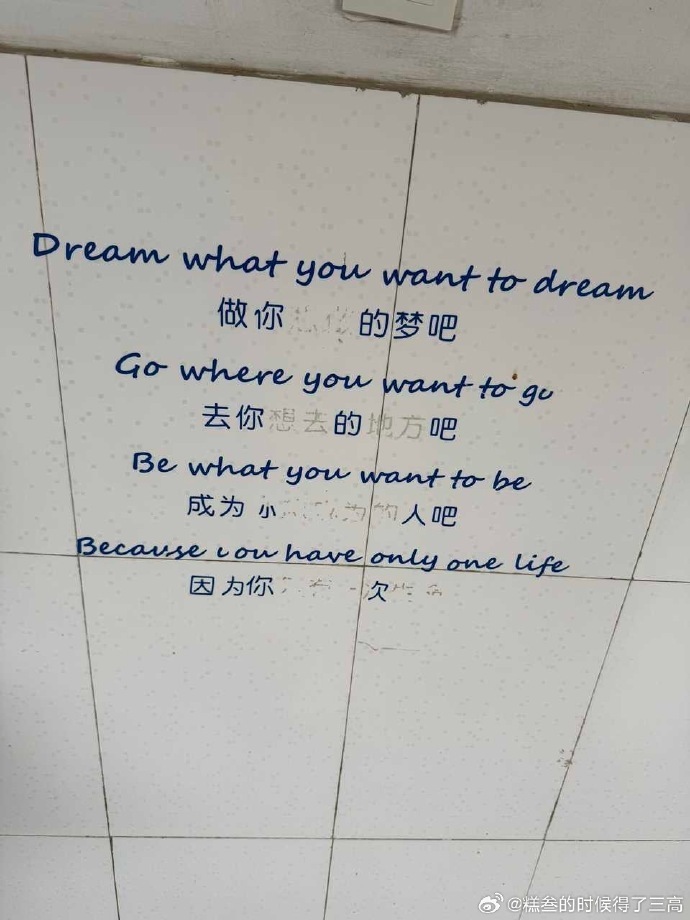 Dream what you want to dream
做你 的梦吧
Go where you want to go
去你想去的地方吧
Be what you want to be
成为 为的人吧
Because you have only one life
因为你 次
@糕叁的时候得了三高